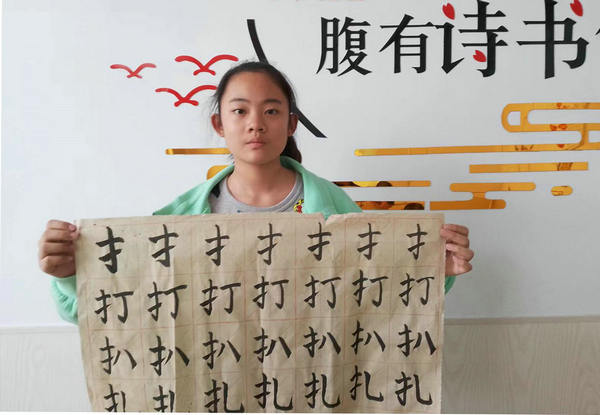 腹有诗书
扌扌扌扌扌扌扌
打打打打打打打
扒扒扒扒扒扒扒
扎扎扎扎扎扎扎